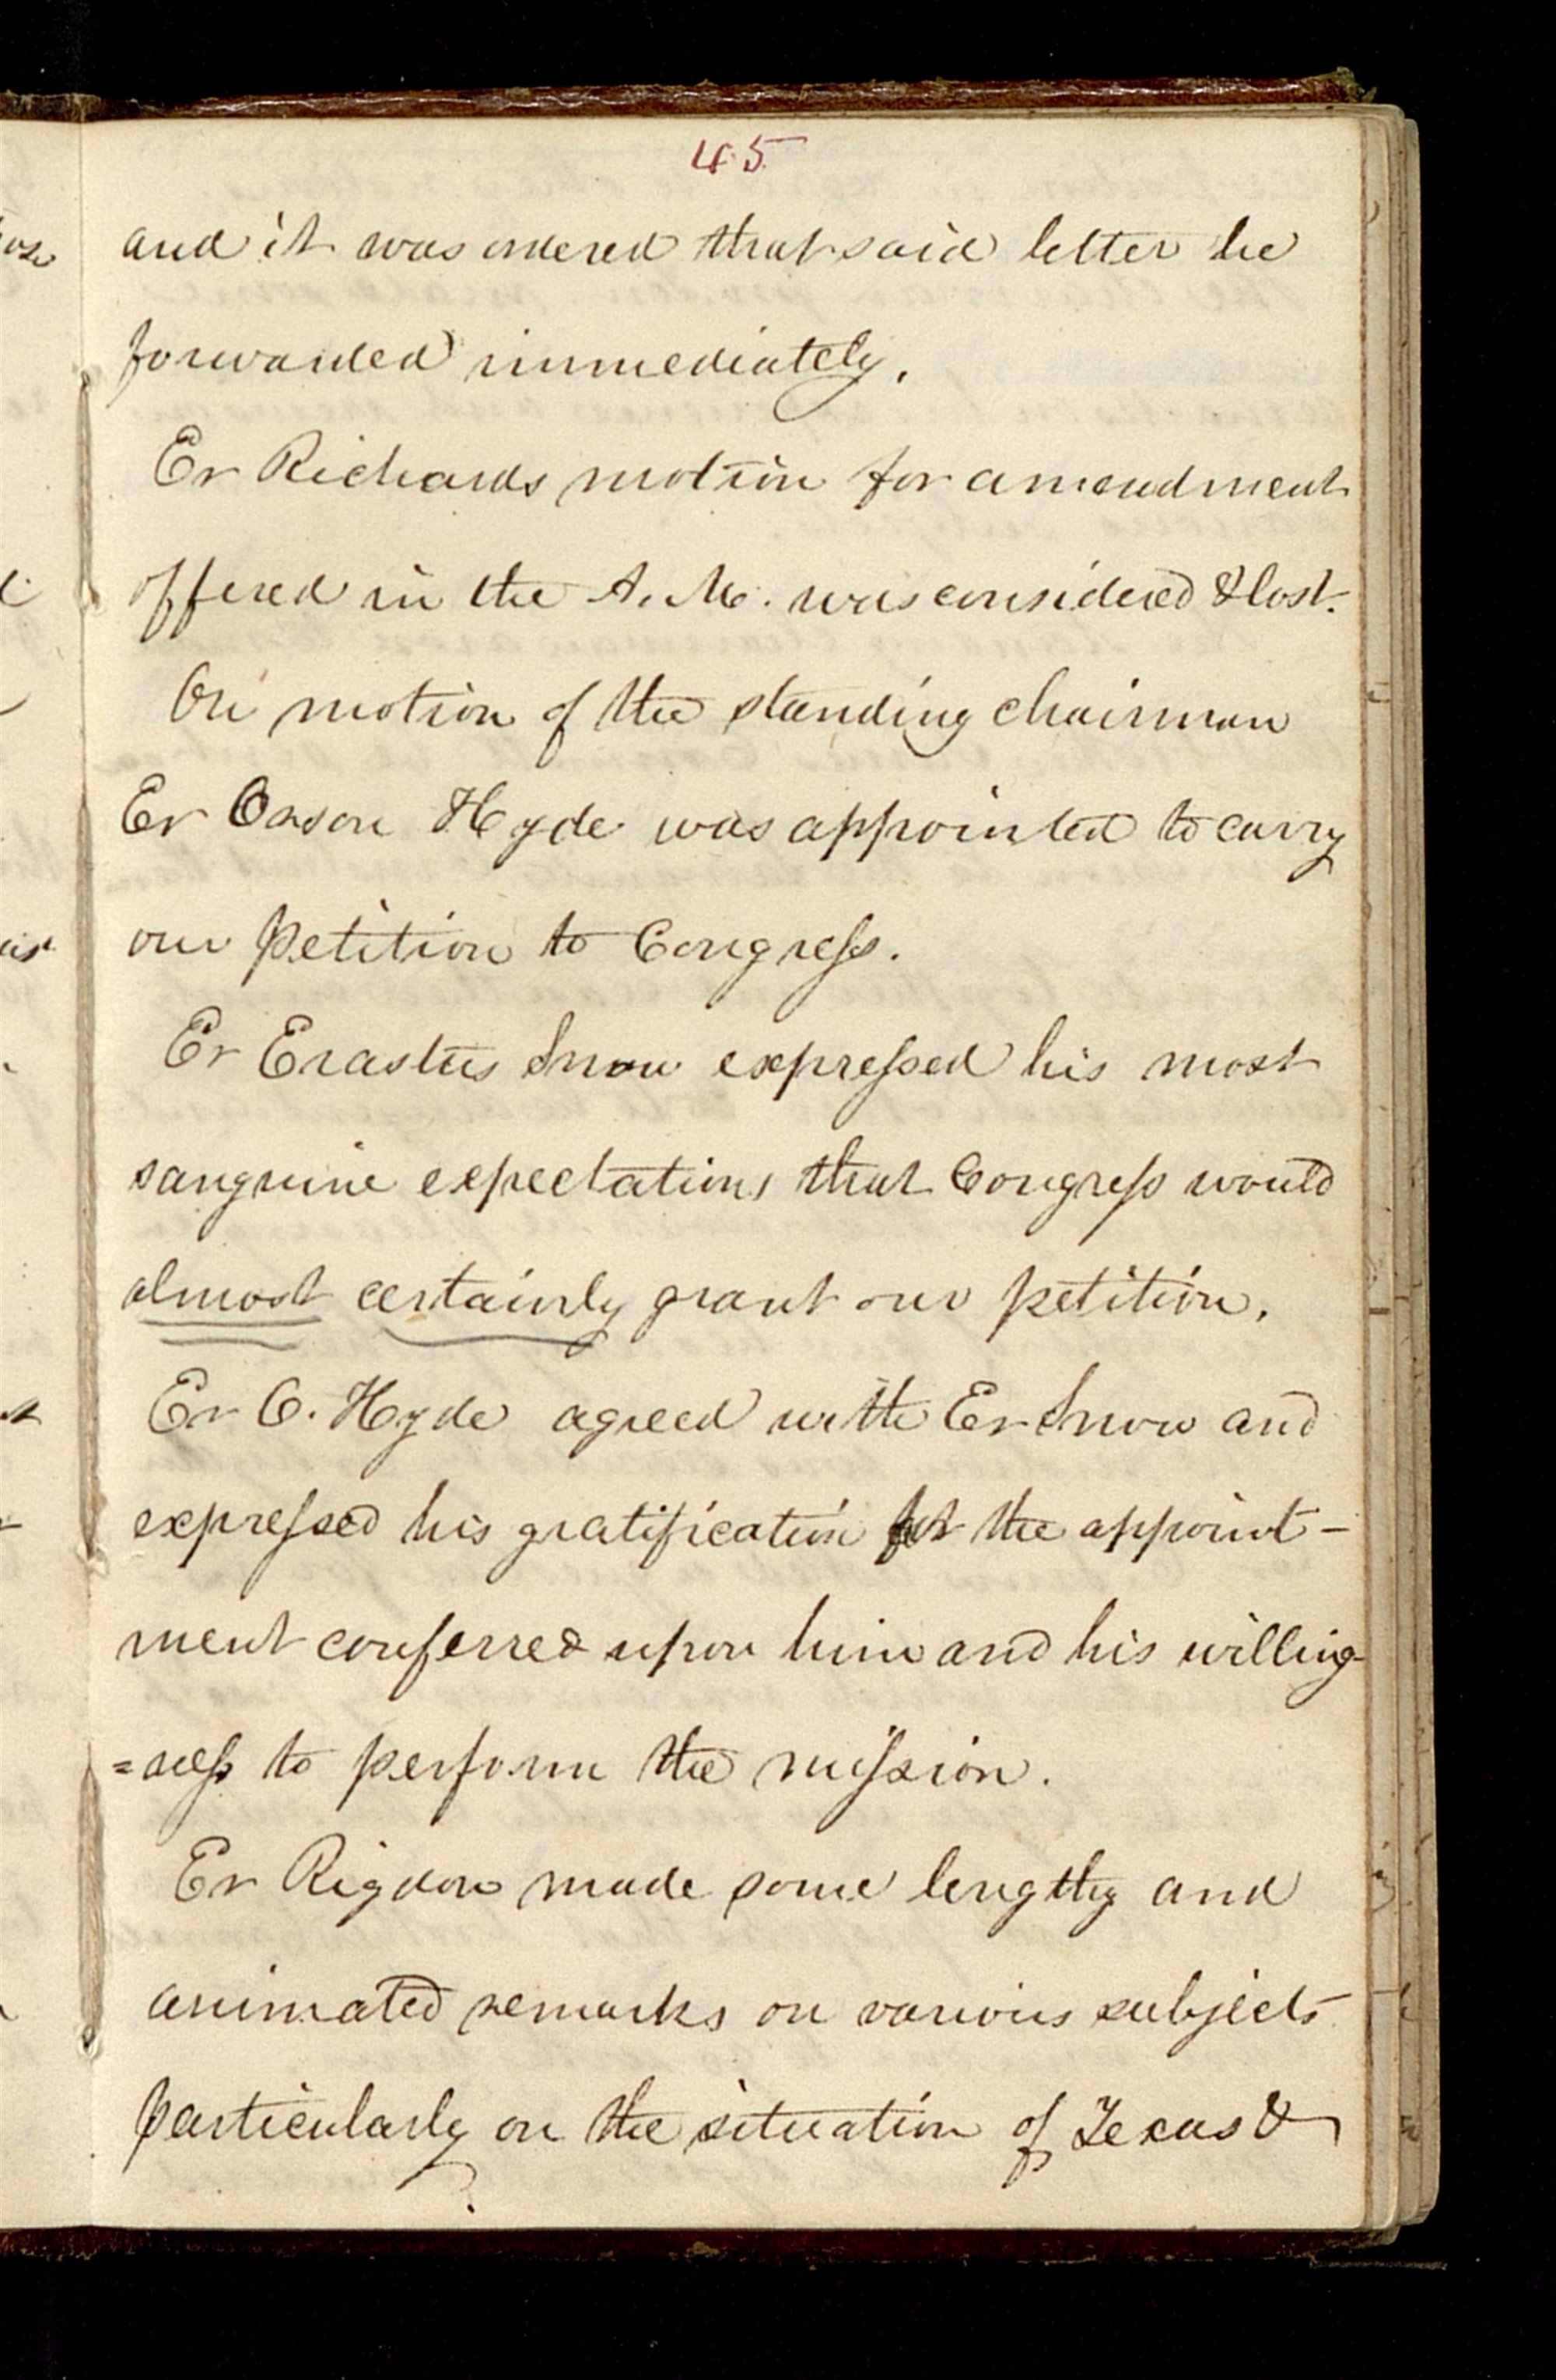 45
and it was ordered that said letter be
forwarded immediately.
Er Richards motion for amendment
offered in the A. M. was considered & lost.
On motion of the standing chairman
Er Orson Hyde was appointed to carry
our petition to Congress.
Er Erastus Snow expressed his most
sanguine expectations that Congress would
almost certainly grant our petition.
Er O. Hyde agreed with Er Snow and
expressed his gratification at the appoint-
ment conferred upon him and his willing-
=ness to perform the mission.
Er Rigdon made some lengthy and
animated remarks on various subjects
particularly on the situation of Texas &